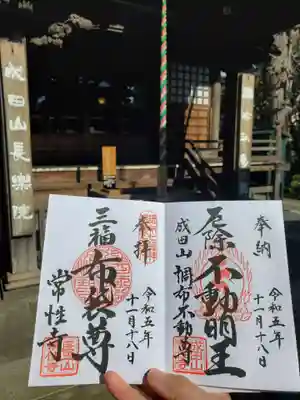 成田山長楽院
奉納
厄除
不動明王
成田山
調布不動尊
令和五年
十一月十八日
奉拝
三福
布袋尊
常性寺
令和五年
十一月十八日